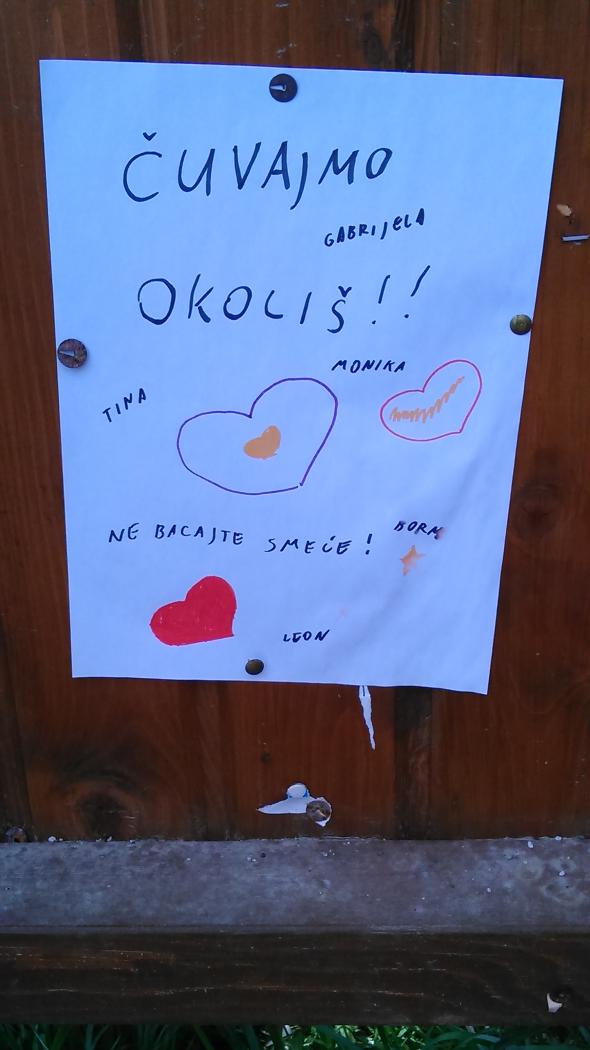 ČUVAJMO
GABRIJELA
OKOLIŠ!!
MONIKA
TINA
NE BACAJTE SMEĆE!
BORNA
LEON